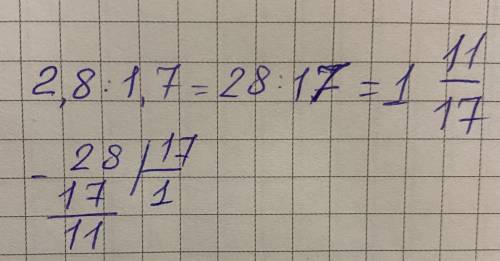 2,8:1,7=28:17=1 11/17
- 28 | 17
17 | 1
11